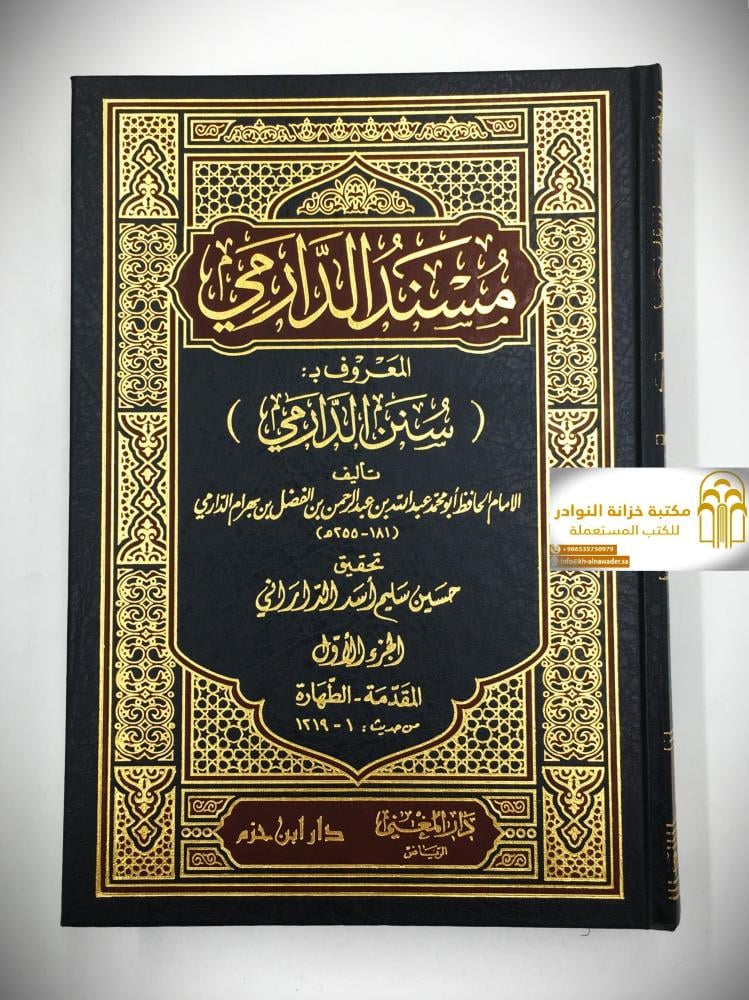 مُسْنَدُ الدَّارِمِيِّ
المَعْرُوف بـ:
( سُنَن الدَّارِمِي )
تأليف
الإمام الحافظ أبو محمد عبد الله بن عبد الرحمن بن الفضل بن بهرام الدّارمي
(١٨١ - ٢٥٥ هـ)
تحقيق
حسين سليم أسد الدّاراني
الجزء الأوّل
المقدّمة - الطّهارة
من حديث : ١ - ١٢١٩
دار المغني
الرياض
دار ابن حزم
مكتبة خزانة النوادر
للكتب المستعملة
+966535750979
info@kh-alnawader.sa